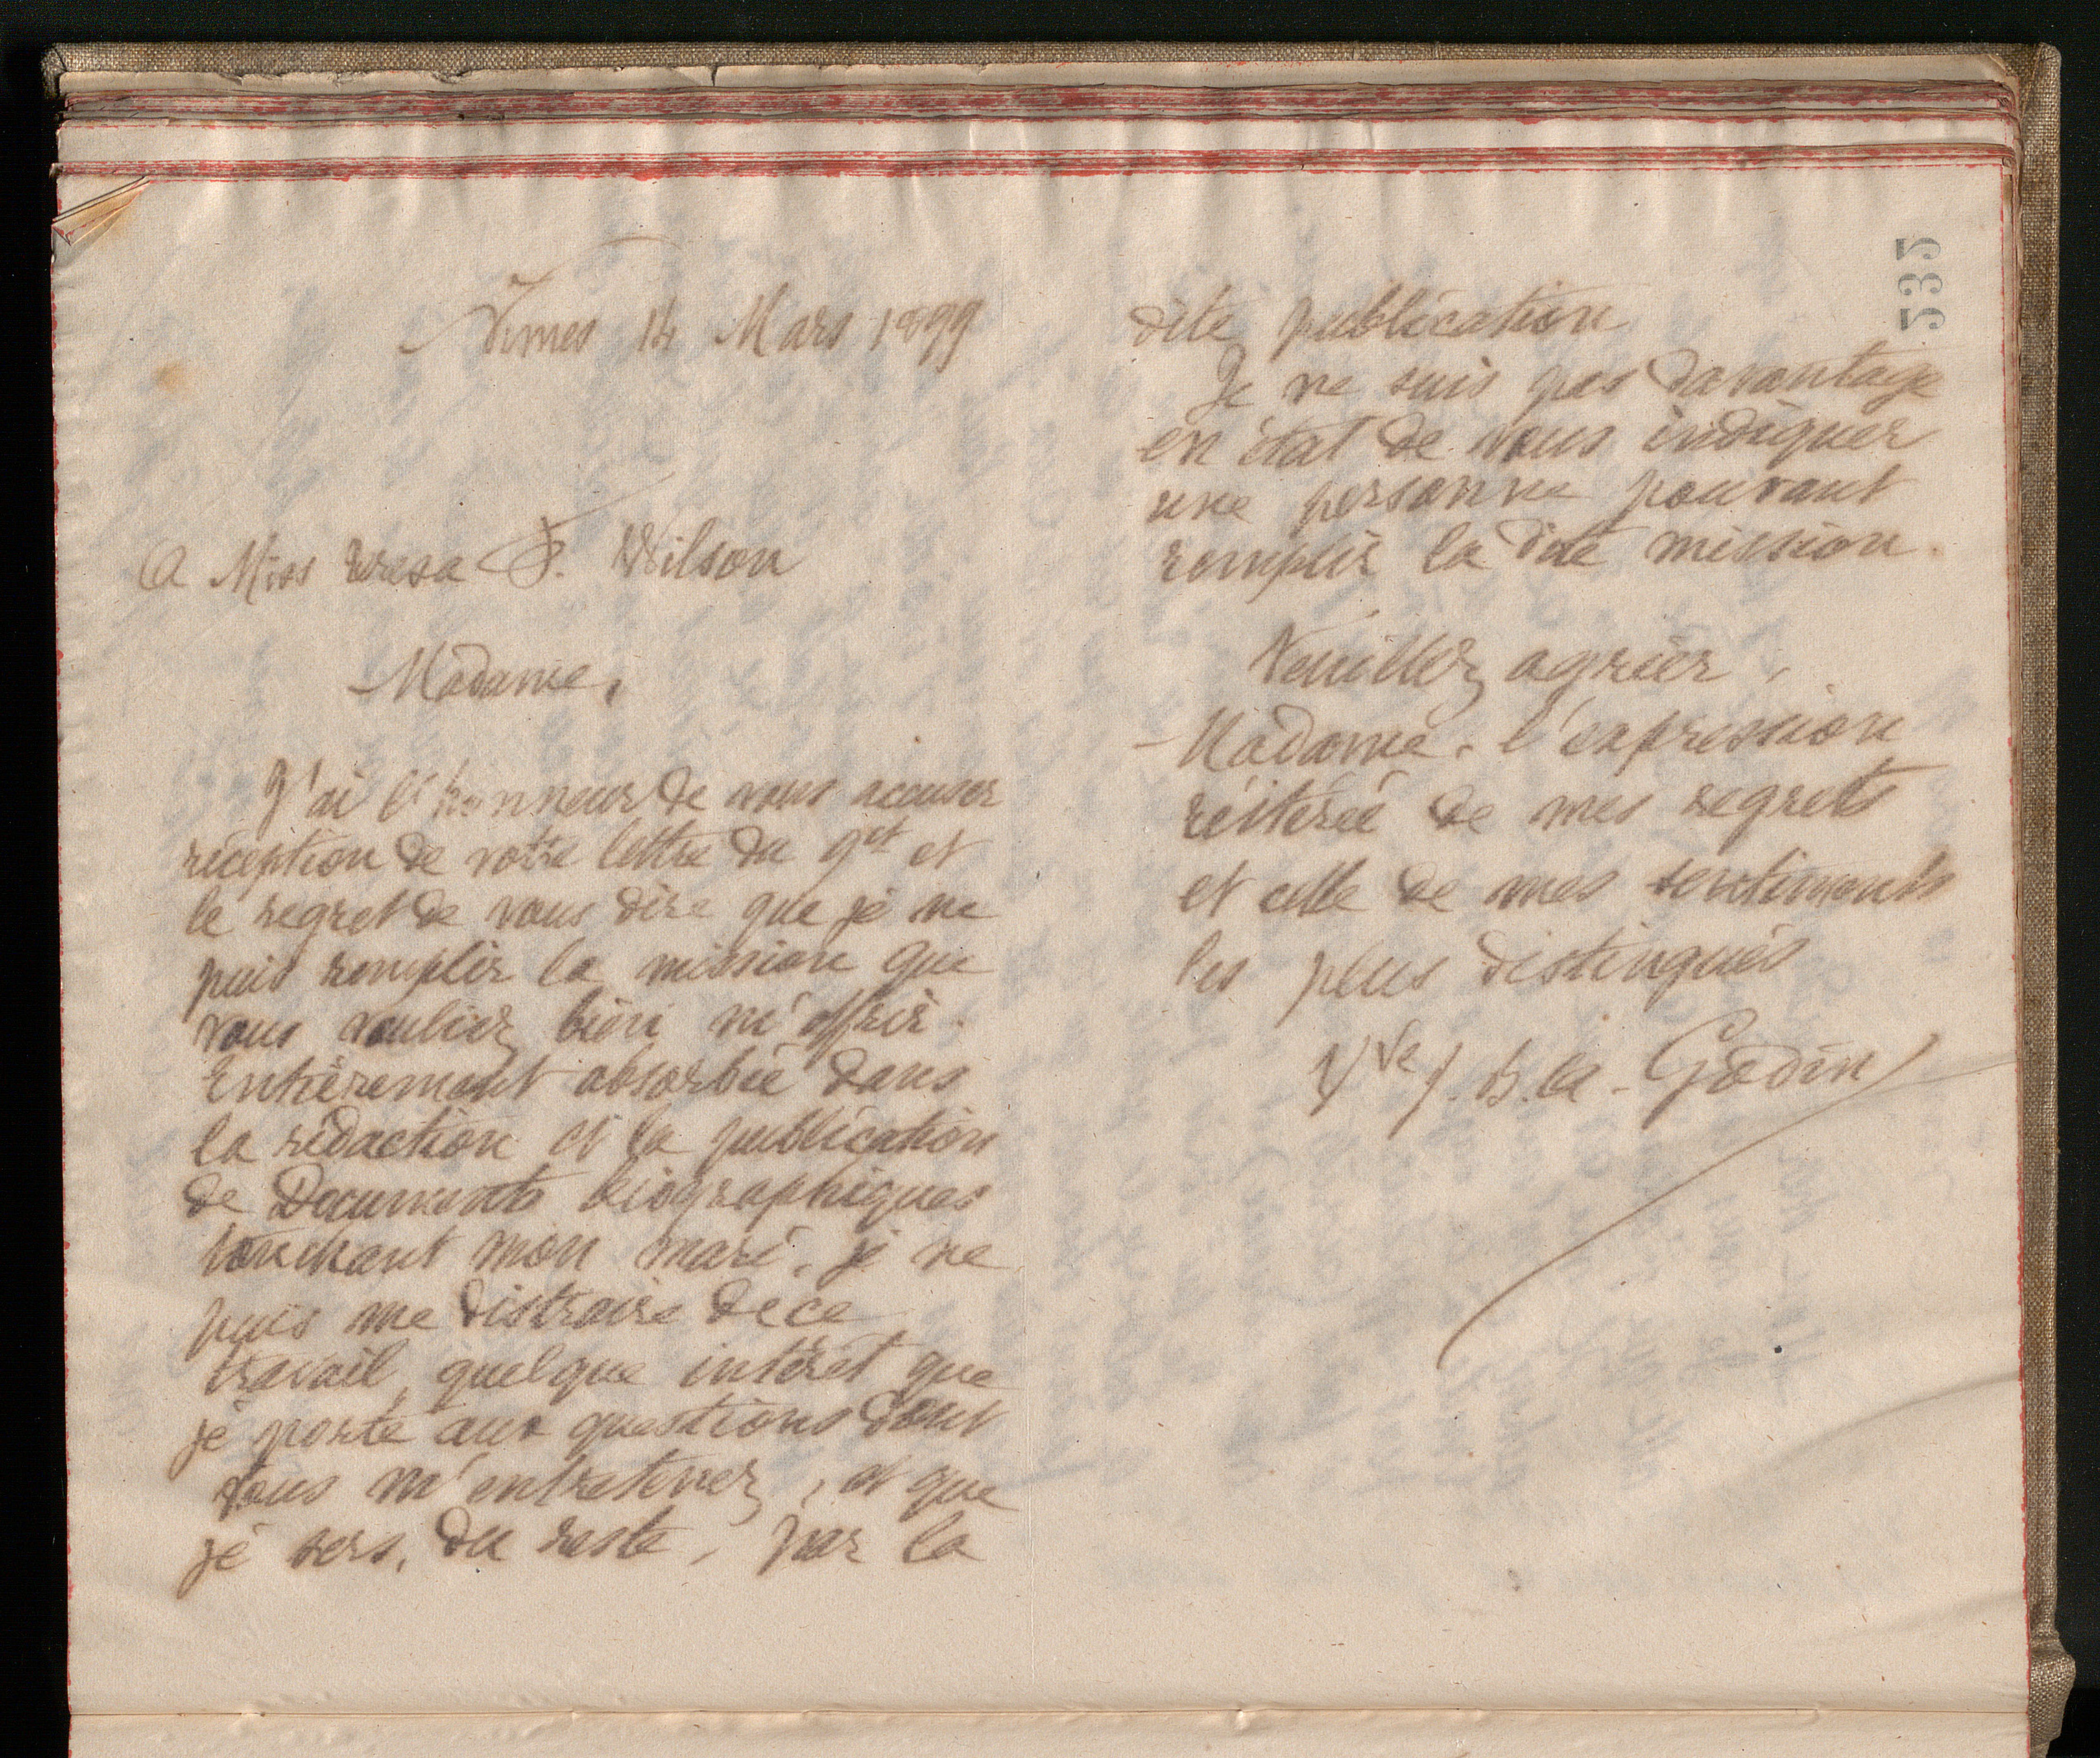 Nimes 14 Mars 1899
A Miss Teresa F. Wilson
Madame,
J'ai l'honneur de vous accuser
réception de votre lettre du 9 ct et
le regret de vous dire que je ne
puis remplir la mission que
vous vouliez bien m'offrir.
Entièrement absorbée dans
la rédaction et la publication
de Documents biographiques
touchant mon mari, je ne
puis me distraire de ce
travail, quelque intérêt que
je porte aux questions dont
vous m'entretenez, et que
je sers, du reste, par la
535
dite publication
Je ne suis pas davantage
en état de vous indiquer
une personne pouvant
remplir la dite mission.
Veuillez agréer,
Madame, l'expression
réitérée de mes regrets
et celle de mes sentiments
les plus distingués
Vve J. B. A. Godin